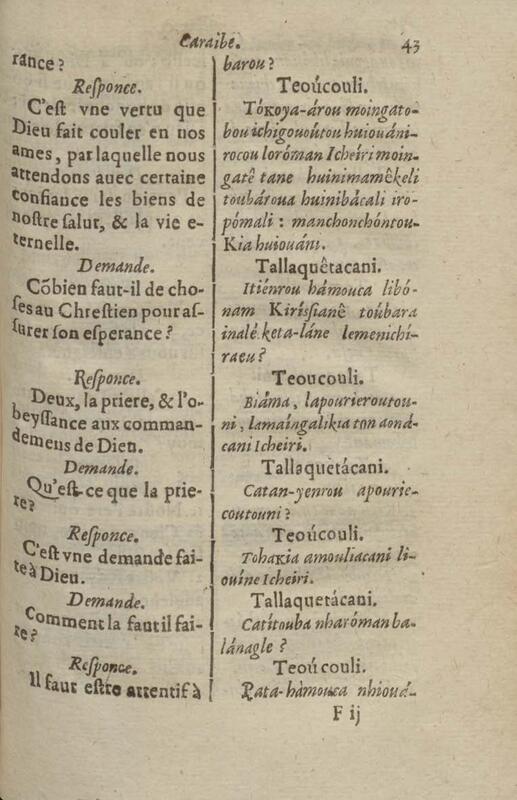 Caraibe. 43
rance?
Responce.
C'est vne vertu que
Dieu fait couler en nos
ames, par laquelle nous
attendons auec certaine
confiance les biens de
nostre salut, & la vie e-
ternelle.
Demande.
Cõbien faut-il de cho-
ses au Chrestien pour as-
surer son esperance?
Responce.
Deux, la priere, & l'o-
beyssance aux comman-
demens de Dieu.
Demande.
Qu'est-ce que la prie-
re?
Responce.
C'est vne demande fai-
te à Dieu.
Demande.
Comment la faut il fai-
re?
Responce.
Il faut estre attentif à
barou?
Teoúcouli.
Tóкoya-árou moingato-
bou ichigououtou huiouáni-
rocou loróman Icheíri moin-
gatê tane huinimamêkeli
toubároua huinibácali iro-
pómali : manchonchóntou-
Kia huiouáni.
Tallaquêtacani.
Itiénrou hámouca libó-
nam Kiríssianê toúbara
inalé keta-láne lemenichí-
raeu?
Teoucouli.
Biáma, lapourieroutou-
ni, lamaíngalikia ton aoná-
cani Icheiri.
Tallaquetácani.
Catan-yenrou apourie-
coutouni?
Teoúcouli.
Tohaкia amouliacani li-
ouíne Icheiri.
Tallaquetácani.
Catítouba nharóman ba-
lánagle?
Teoúcouli.
Rata-hámouca nhiouá-
F ij